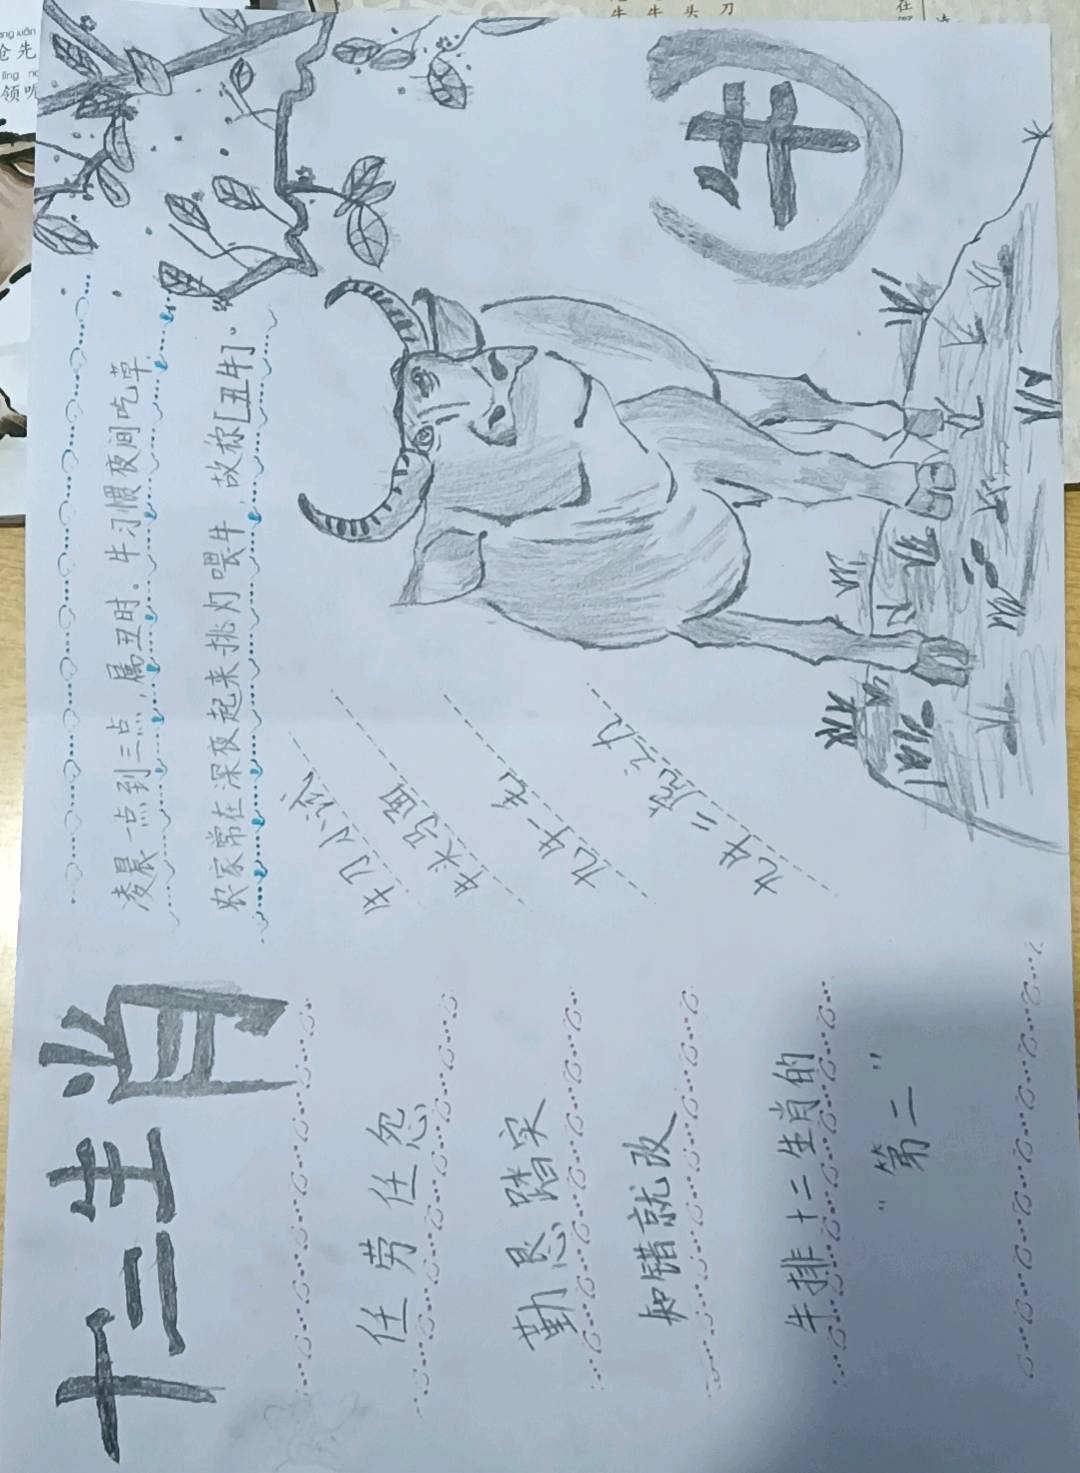 十二生肖
凌晨一点到三点，属丑时、牛习惯夜间吃草，
农家常在深夜起来挑灯喂牛，故称[丑牛]。
牛
牛刀小试
牛头马面
九牛一毛
九牛二虎之力
任劳任怨
勤恳踏实
知错就改
牛排十二生肖的
“第二”
抢先
领呢